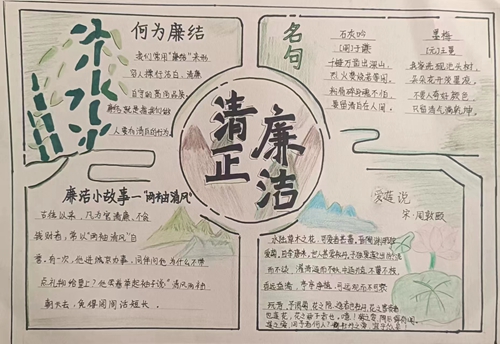 何为廉洁
我们常用"廉洁"来形
容人操行洁白、清廉
自守的高尚品质。
廉洁就是指我们做
人要有清白的行为
名句
石灰吟
[明]于谦
千锤万凿出深山,
烈火焚烧若等闲。
粉骨碎身浑不怕,
要留清白在人间。
墨梅
[元]王冕
我家洗砚池头树,
朵朵花开淡墨痕。
不要人夸好颜色,
只留清气满乾坤。
清正
廉洁
廉洁小故事一"两袖清风"
古往以来,凡为官清廉,不会
钱财者,常以"两袖清风"自
誉,有一次,他进城京办事,同伴问他为什么不带
点礼物给皇上?他笑着举起袖子说"清风两袖
朝天去,免得闾阎话短长。
爱莲说
宋·周敦颐
水陆草木之花,可爱者甚蕃。晋陶渊明独
爱菊。自李唐来,世人甚爱牡丹。予独爱莲之出淤泥
而不染,濯清涟而不妖,中通外直,不蔓不枝,
香远益清,亭亭净植,可远观而不可亵
玩焉。予谓菊,花之隐逸者也;牡丹,花之富贵者
也;莲,花之君子者也。噫!菊之爱,陶后鲜有闻。
莲之爱,同予者何人?牡丹之爱,宜乎众矣!